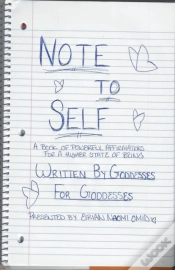 NOTE
TO
SELF
A BOOK OF POWERFUL AFFIRMATIONS
FOR A HIGHER STATE OF BEING
WRITTEN BY GODDESSES
FOR GODDESSES
PRESENTED BY BRYAN NAOMI OMID